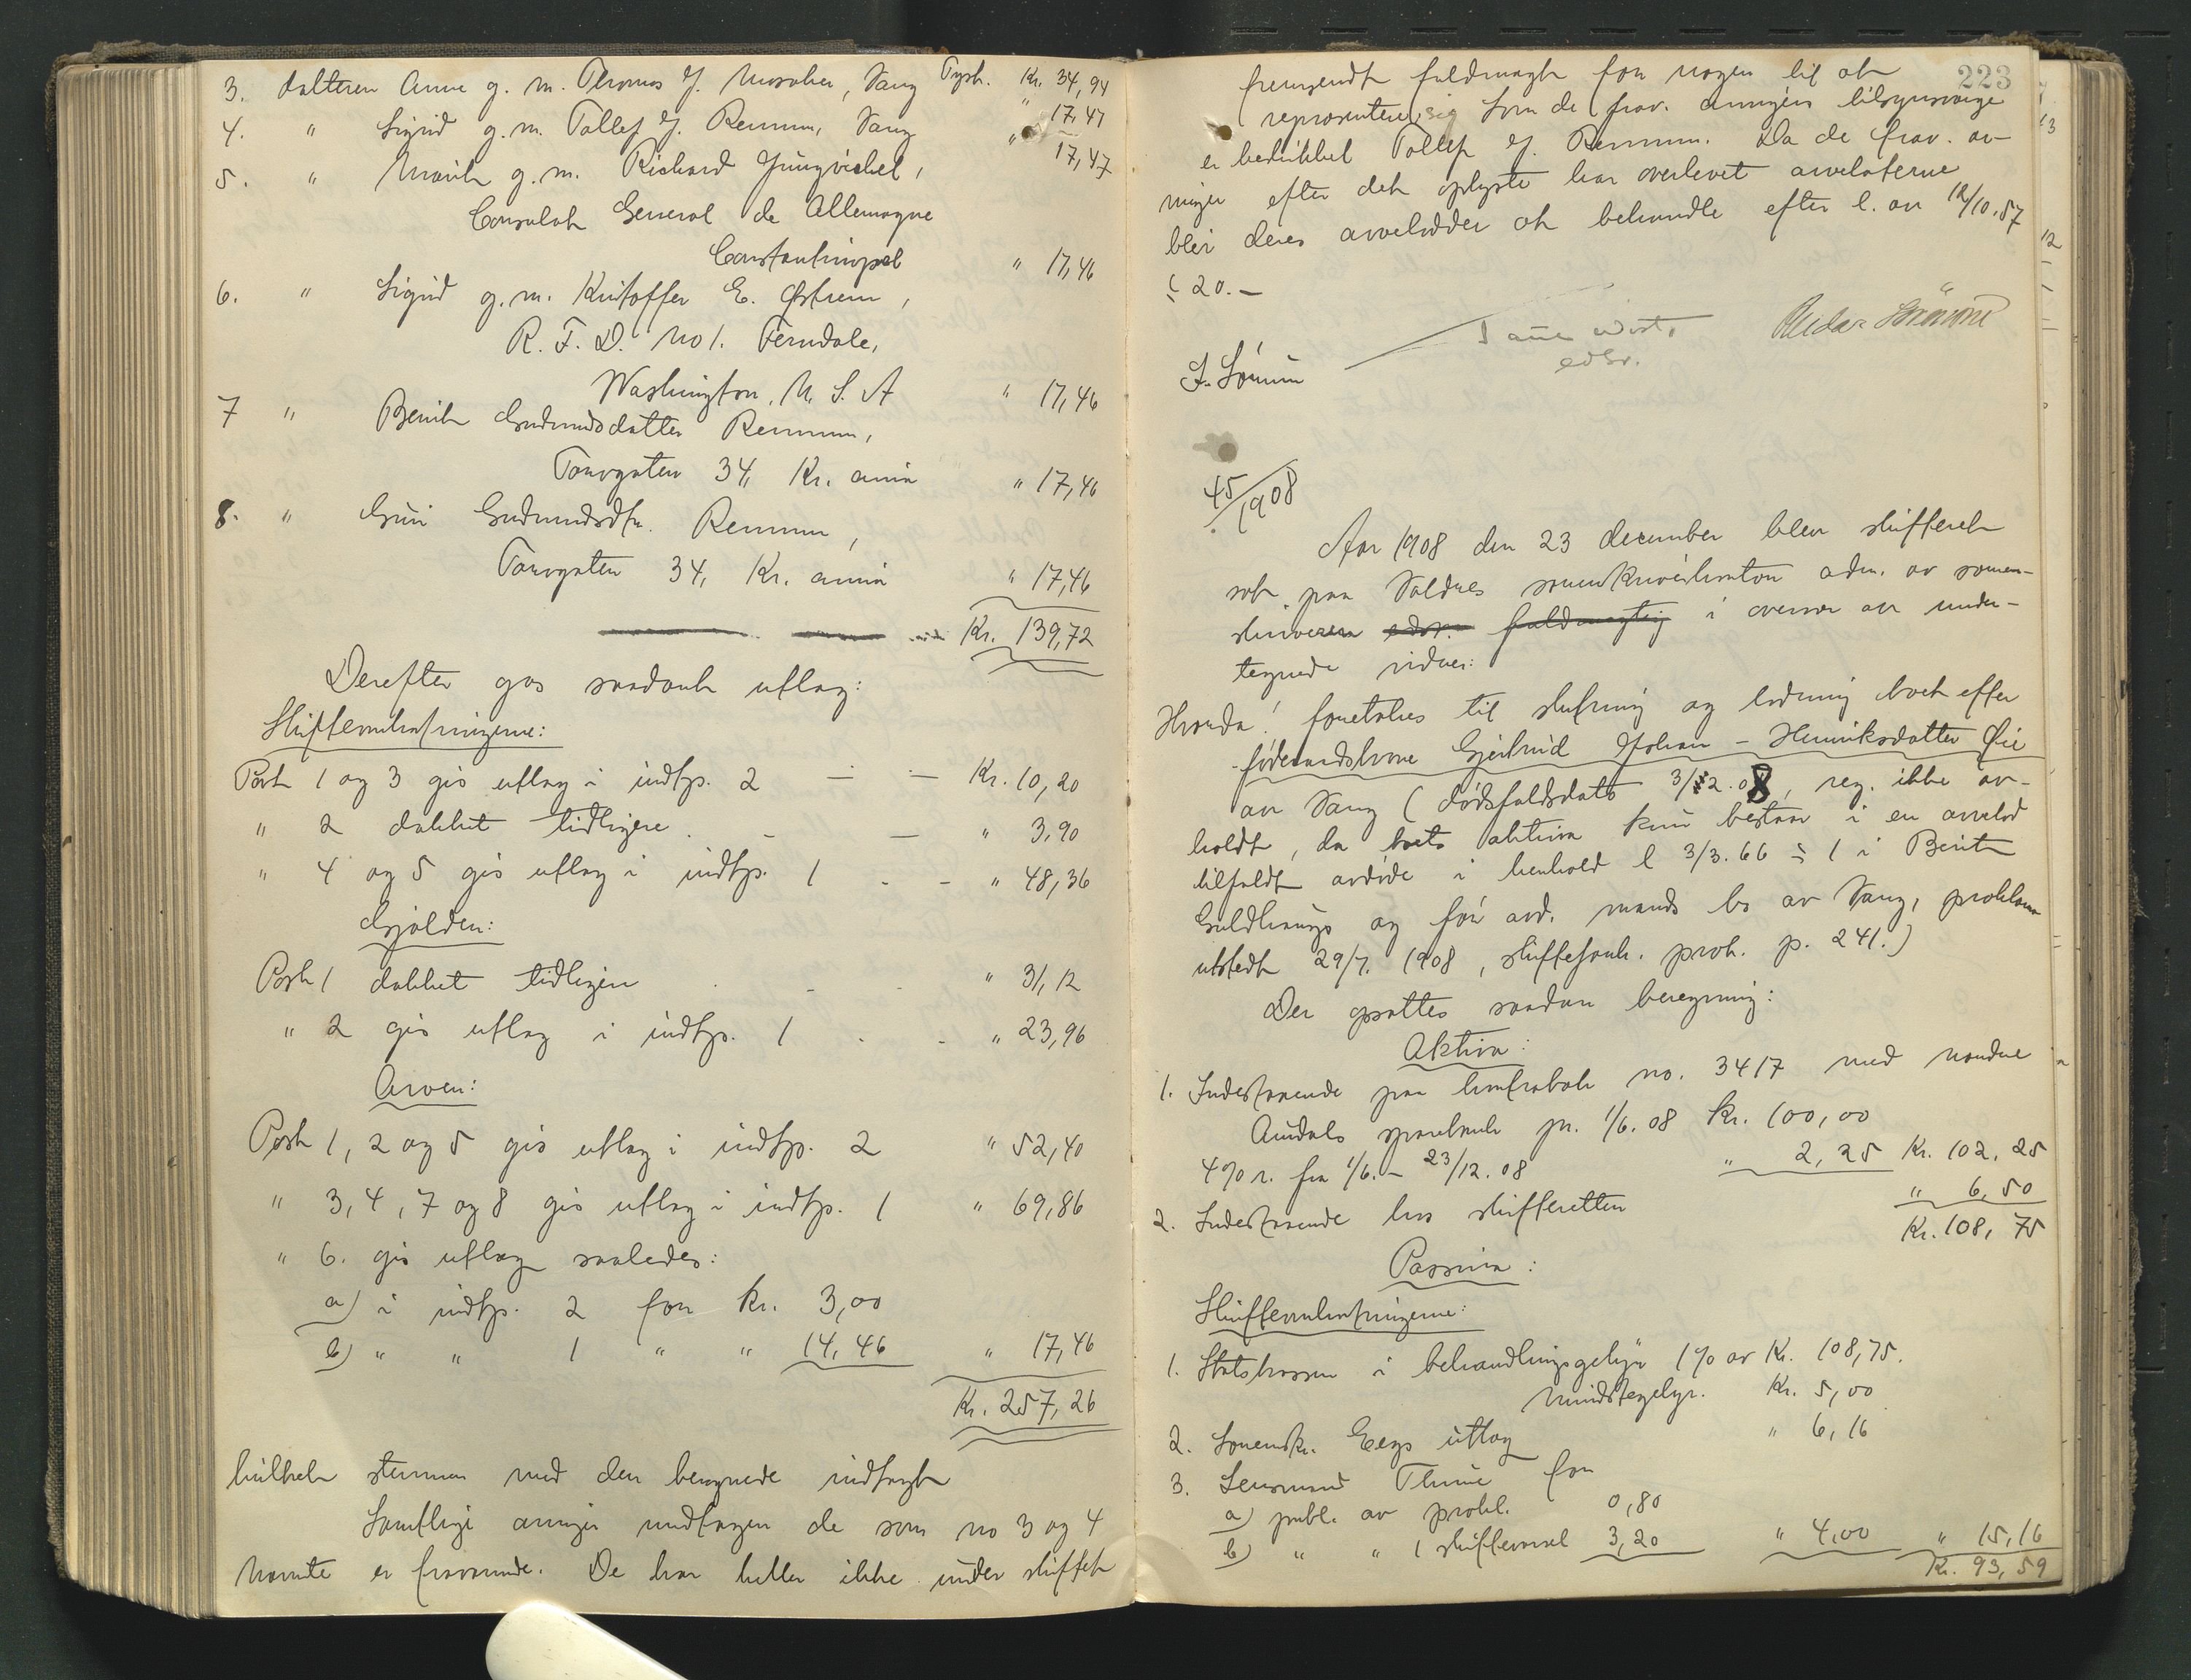 3. datteren Anne g. m. Thomas G. Mosaker, Vang Tyrk. Kr. 34,94
4. " Sigrid g. m. Tollef G. Remmen, Vang " 17,47
5. " Marit g. m. Richard Jungnickel, " 17,47
Consulat General de Allemagne
Constantinopel " 17,46
6. " Sigrid g. m. Kristoffer E. Østrem,
R. F. D. No 1. Ferndale,
Washington, U. S. A " 17,46
7 " Berit Gudmundsdatter Remmen,
Torvgaten 34, Kr. ania " 17,46
8. " Guri Gudmundsdtr. Remmen,
Torvgaten 34, Kr. ania " 17,46
Kr. 139,72
Derefter gøs saadant utlæg:
Skifteomkostningerne:
Post 1 og 3 gis utlæg i indtp. 2 - - Kr. 10,20
" 2 dækket tidligere - - " 3,90
" 4 og 5 gis utlæg i indtp. 1 - - " 48,36
Gjælden:
Post 1 dækket tidligere - - " 31,12
" 2 gis utlæg i indtp. 1 - - " 23,96
Arven:
Post 1, 2 og 5 gis utlæg i indtp. 2 " 52,40
" 3, 4, 7 og 8 gis utlæg i indtp. 1 " 69,86
" 6. gis utlæg saaledes:
a) i indtp. 2 for kr. 3,00
b) " " 1 " " 14,46 " 17,46
Kr. 257,26
hvilket stemmer med den beregnede indtægt
Samtlige arvinger undtagen de som no 3 og 4
nævnte er fraværende. De har heller ikke under skiftet
223
fremsendt fuldmagt for nogen til at
repræsentere sig. Som de frav. arvingers tilsynsværge
er beskikket Tollef G. Remmen. Da de frav. ar-
vinger efter det oplyste har overlevet arveladerne
blir deres arvelodder at behandle efter l. av 12/10.57
§ 20. -
45/1908
Aar 1908 den 23 december blev skifteret
sat paa Valdres sorenskriverkontor adm. av soren-
skriveren edsv. fuldmægtig i overvær av under-
tegnede vidner:
Hvorda! foretokes til slutning og lodning boet efter
føderaadskone Gjertrud Johan-Henriksdatter Øie
av Vang (dødsfaldsdato 3/12.08, reg. ikke av-
holdt, da boets aktiva kun bestaar i en arvelod
tilfaldt avdøde i henhold l 3/3.66 § 1 i Berit
Guldhaugs og før avd. mands bo av Vang, proklama
utstedt 29/7. 1908, skiftesaml. prot. p. 241.)
Der opsattes saadan beregning:
Aktiva:
1. Indestaaende paa kontrabok no. 3417 med Nordre
Aurdals sparebank pr. 1/6. 08 Kr. 100,00
4% r. fra 1/6. - 23/12. 08 " 2,25 Kr. 102,25
2. Indestaaende hos skifteretten " 6,50
Kr. 108,75
Passiva:
Skifteomkostningerne:
1. Statskassen i behandlingsgebyr 1% av Kr. 108,75.
Mindstegebyr. Kr. 5,00
2. Sorenskr. Eegs utlæg " 6,16
3. Lensmand Thune for
a) publ. av prokl. 0,80
b) " " 1 skiftevarsel 3,20 " 4,00 " 15,16
Kr. 93,59